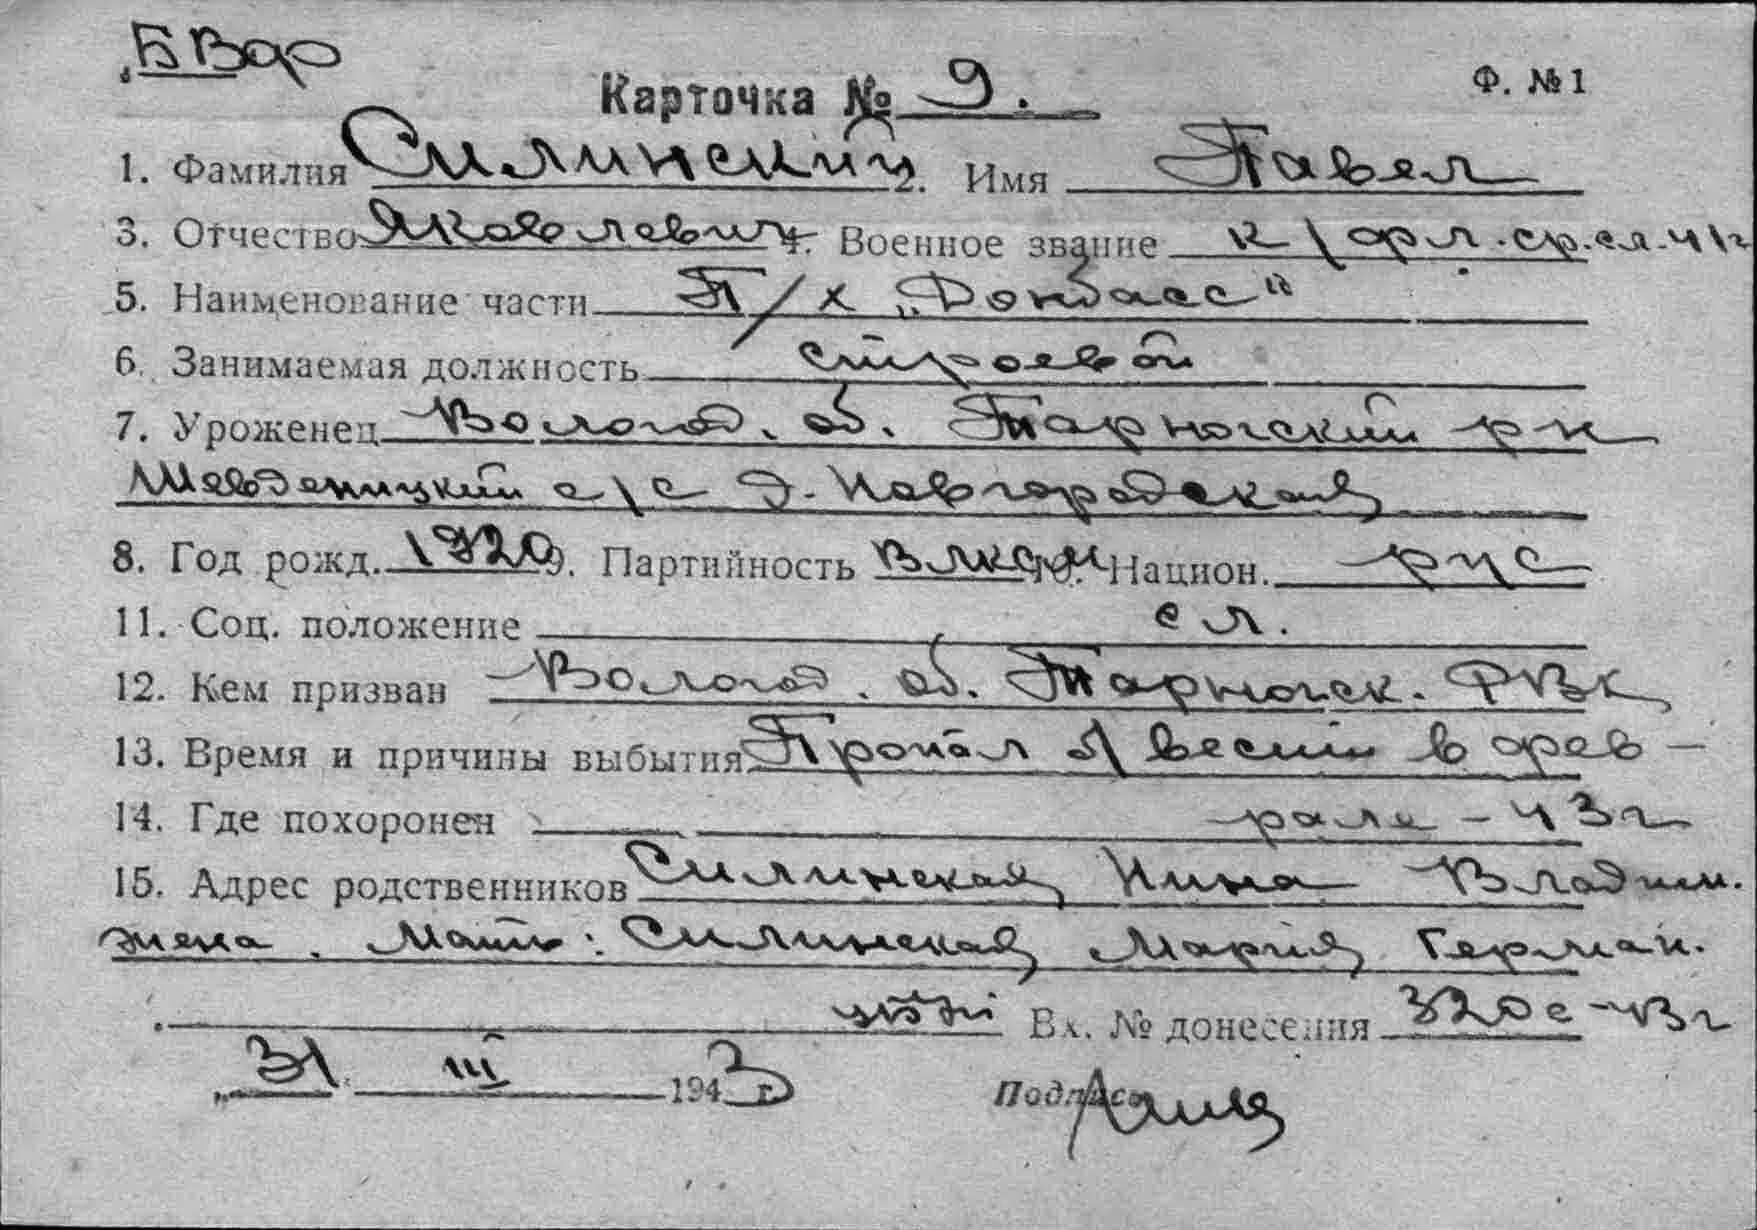 БВФ
Карточка № 9. Ф. №1
1. Фамилия Силинский 2. Имя Павел
3. Отчество Яковлевич 4. Военное звание к/фл. ср.сл. 41г
5. Наименование части П/х „Донбасс"
6. Занимаемая должность строевой
7. Уроженец Вологод. об. Тарногский р-н
Шевденицкий с/с д. Новгородская
8. Год рожд. 1920 9. Партийность ВЛКСМ 10. Национ. рус
11. Соц. положение сл.
12. Кем призван Вологод. об. Тарногск. РВК
13. Время и причины выбытия Пропал б/вести в фев-
14. Где похоронен рале - 43г
15. Адрес родственников Силинская Нина Владим.
жена. Мать: Силинская Мария Герман.
Вх. № донесения 320с-43г
„31 III 1943 г.
Подпись